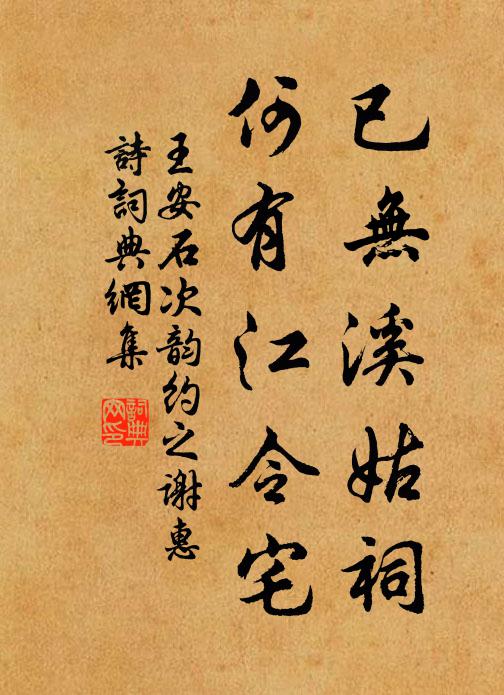 已無溪姑祠
何有江令宅
王安石次韵約之謝惠
詩詞典網集
詞典網印